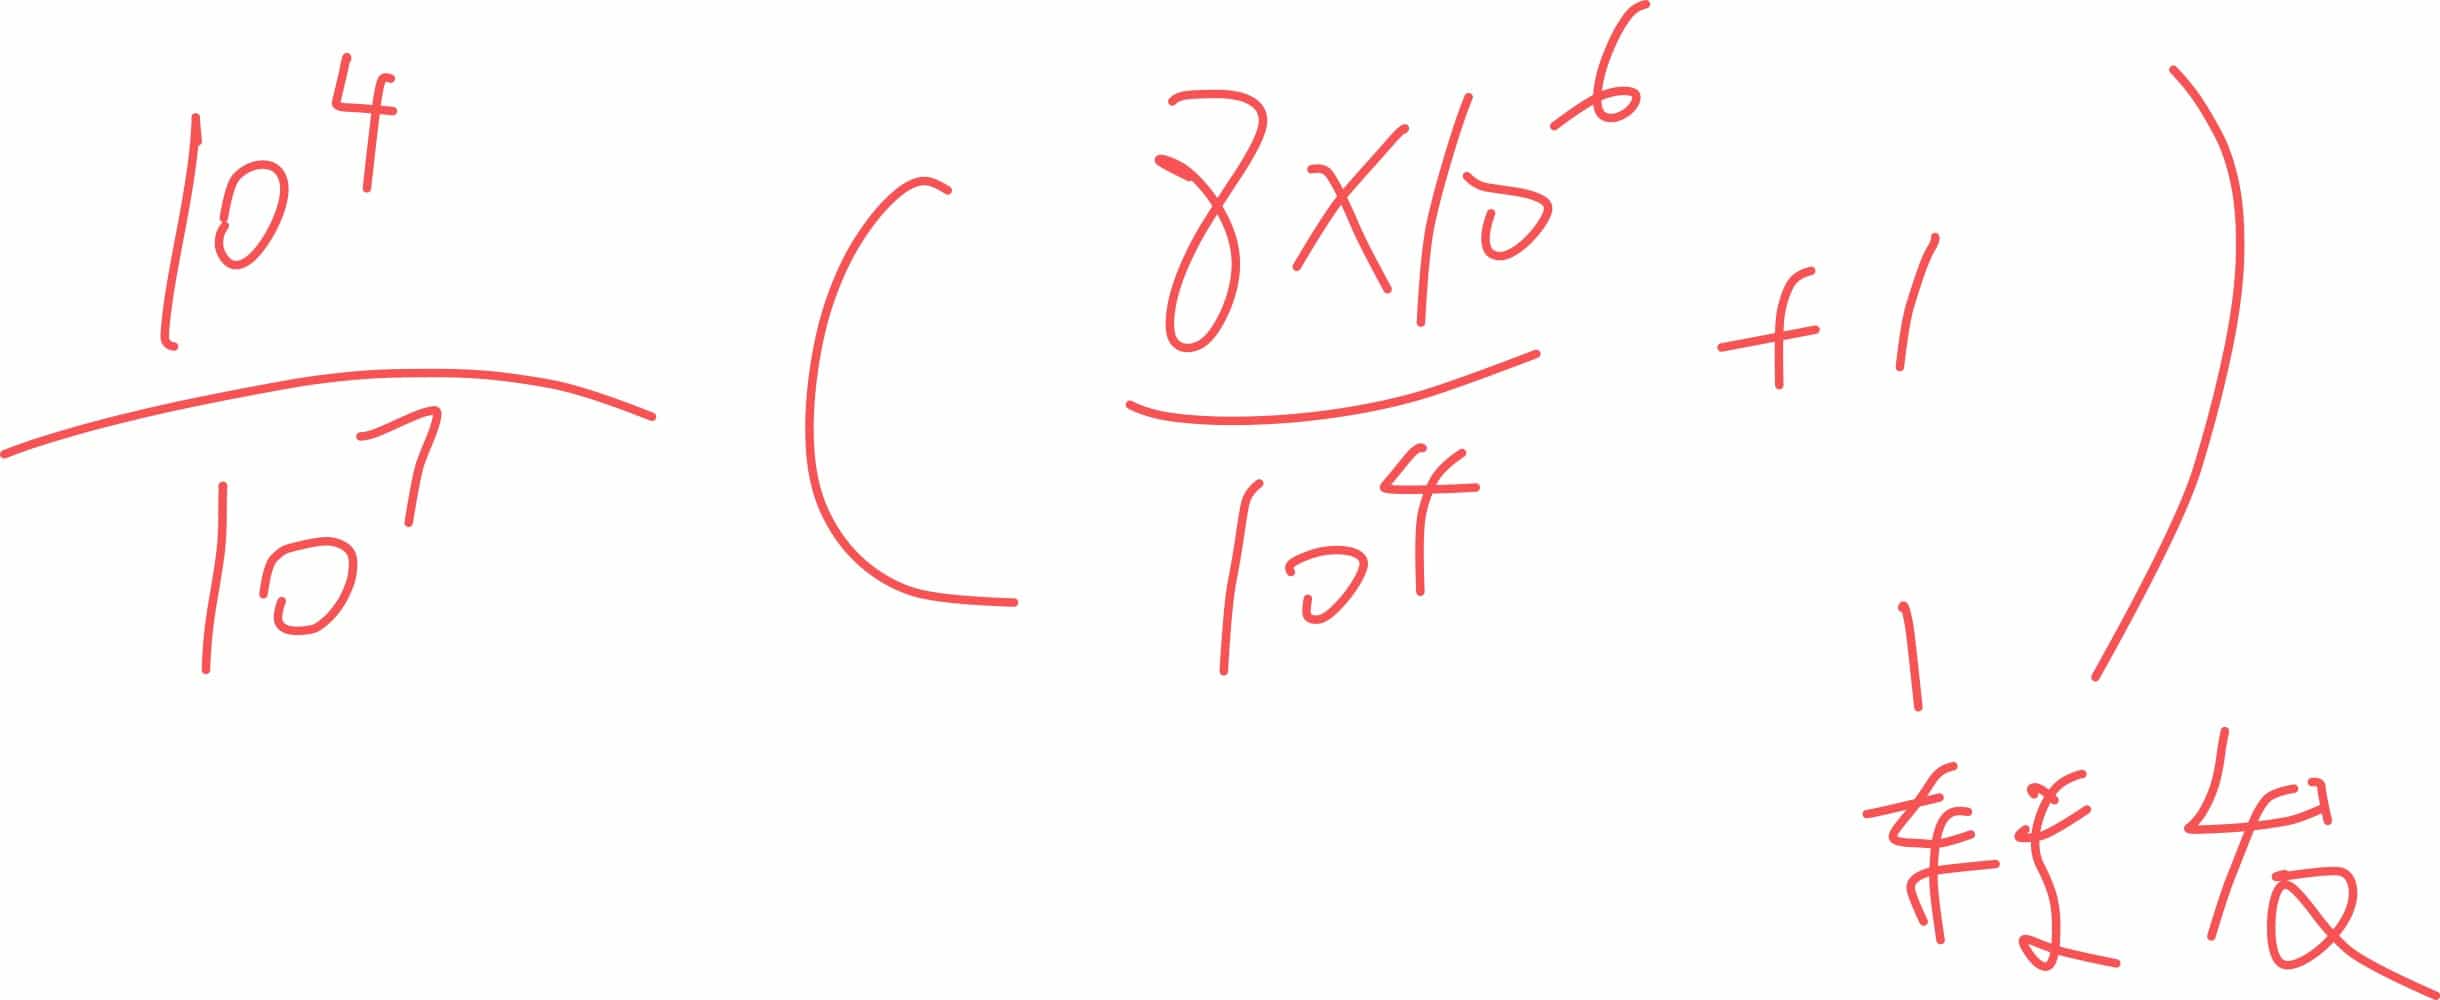 10^4 / 10^7 ( 8×10^6 / 10^4 + 1 )
转发